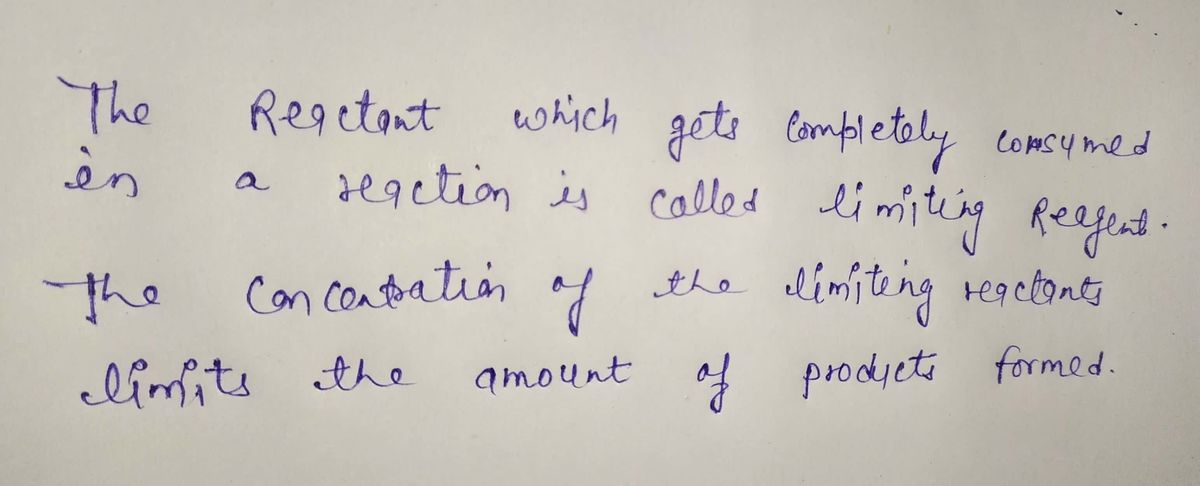 The Reactant which gets Completely consumed
in a reaction is called limiting Reagent.
The Concentration of the limiting reactants
limits the amount of products formed.